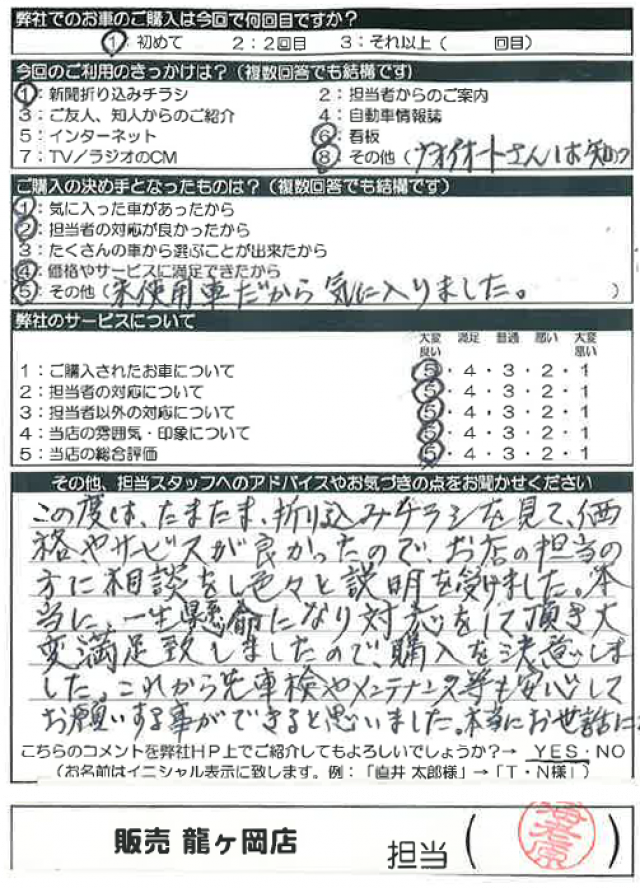 弊社でのお車のご購入は今回で何回目ですか?
1:初めて 2:2回目 3:それ以上( 回目)
今回のご利用のきっかけは?(複数回答でも結構です)
1:新聞折り込みチラシ 2:担当者からのご案内
3:ご友人、知人からのご紹介 4:自動車情報誌
5:インターネット 6:看板
7:TV/ラジオのCM 8:その他(ナオイオートさんは知っ
ご購入の決め手となったものは?(複数回答でも結構です)
1:気に入った車があったから
2:担当者の対応が良かったから
3:たくさんの車から選ぶことが出来たから
4:価格やサービスに満足できたから
5:その他(未使用車だから気に入りました。 )
弊社のサービスについて
大変良い 満足 普通 悪い 大変悪い
1:ご購入されたお車について 5・4・3・2・1
2:担当者の対応について 5・4・3・2・1
3:担当者以外の対応について 5・4・3・2・1
4:当店の雰囲気・印象について 5・4・3・2・1
5:当店の総合評価 5・4・3・2・1
その他、担当スタッフへのアドバイスやお気づきの点をお聞かせください
この度は、たまたま、折り込みチラシを見て、価
格、やサービスが良かったので、お店の担当の
方に相談をし色々と説明を受けました。本
当に、一生懸命になり対応をして頂き大
変満足致しましたので、購入を決意しま
した。これから先車検やメンテナンス等も安心して
お願いする事ができると思いました。本当にお世話に
こちらのコメントを弊社HP上でご紹介してもよろしいでしょうか?→ YES・NO
(お名前はイニシャル表示に致します。例:「直井 太郎様」→「T・N様」)
販売 龍ヶ岡店 担当( 海老原 )